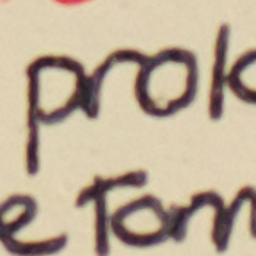 prok
e Tom